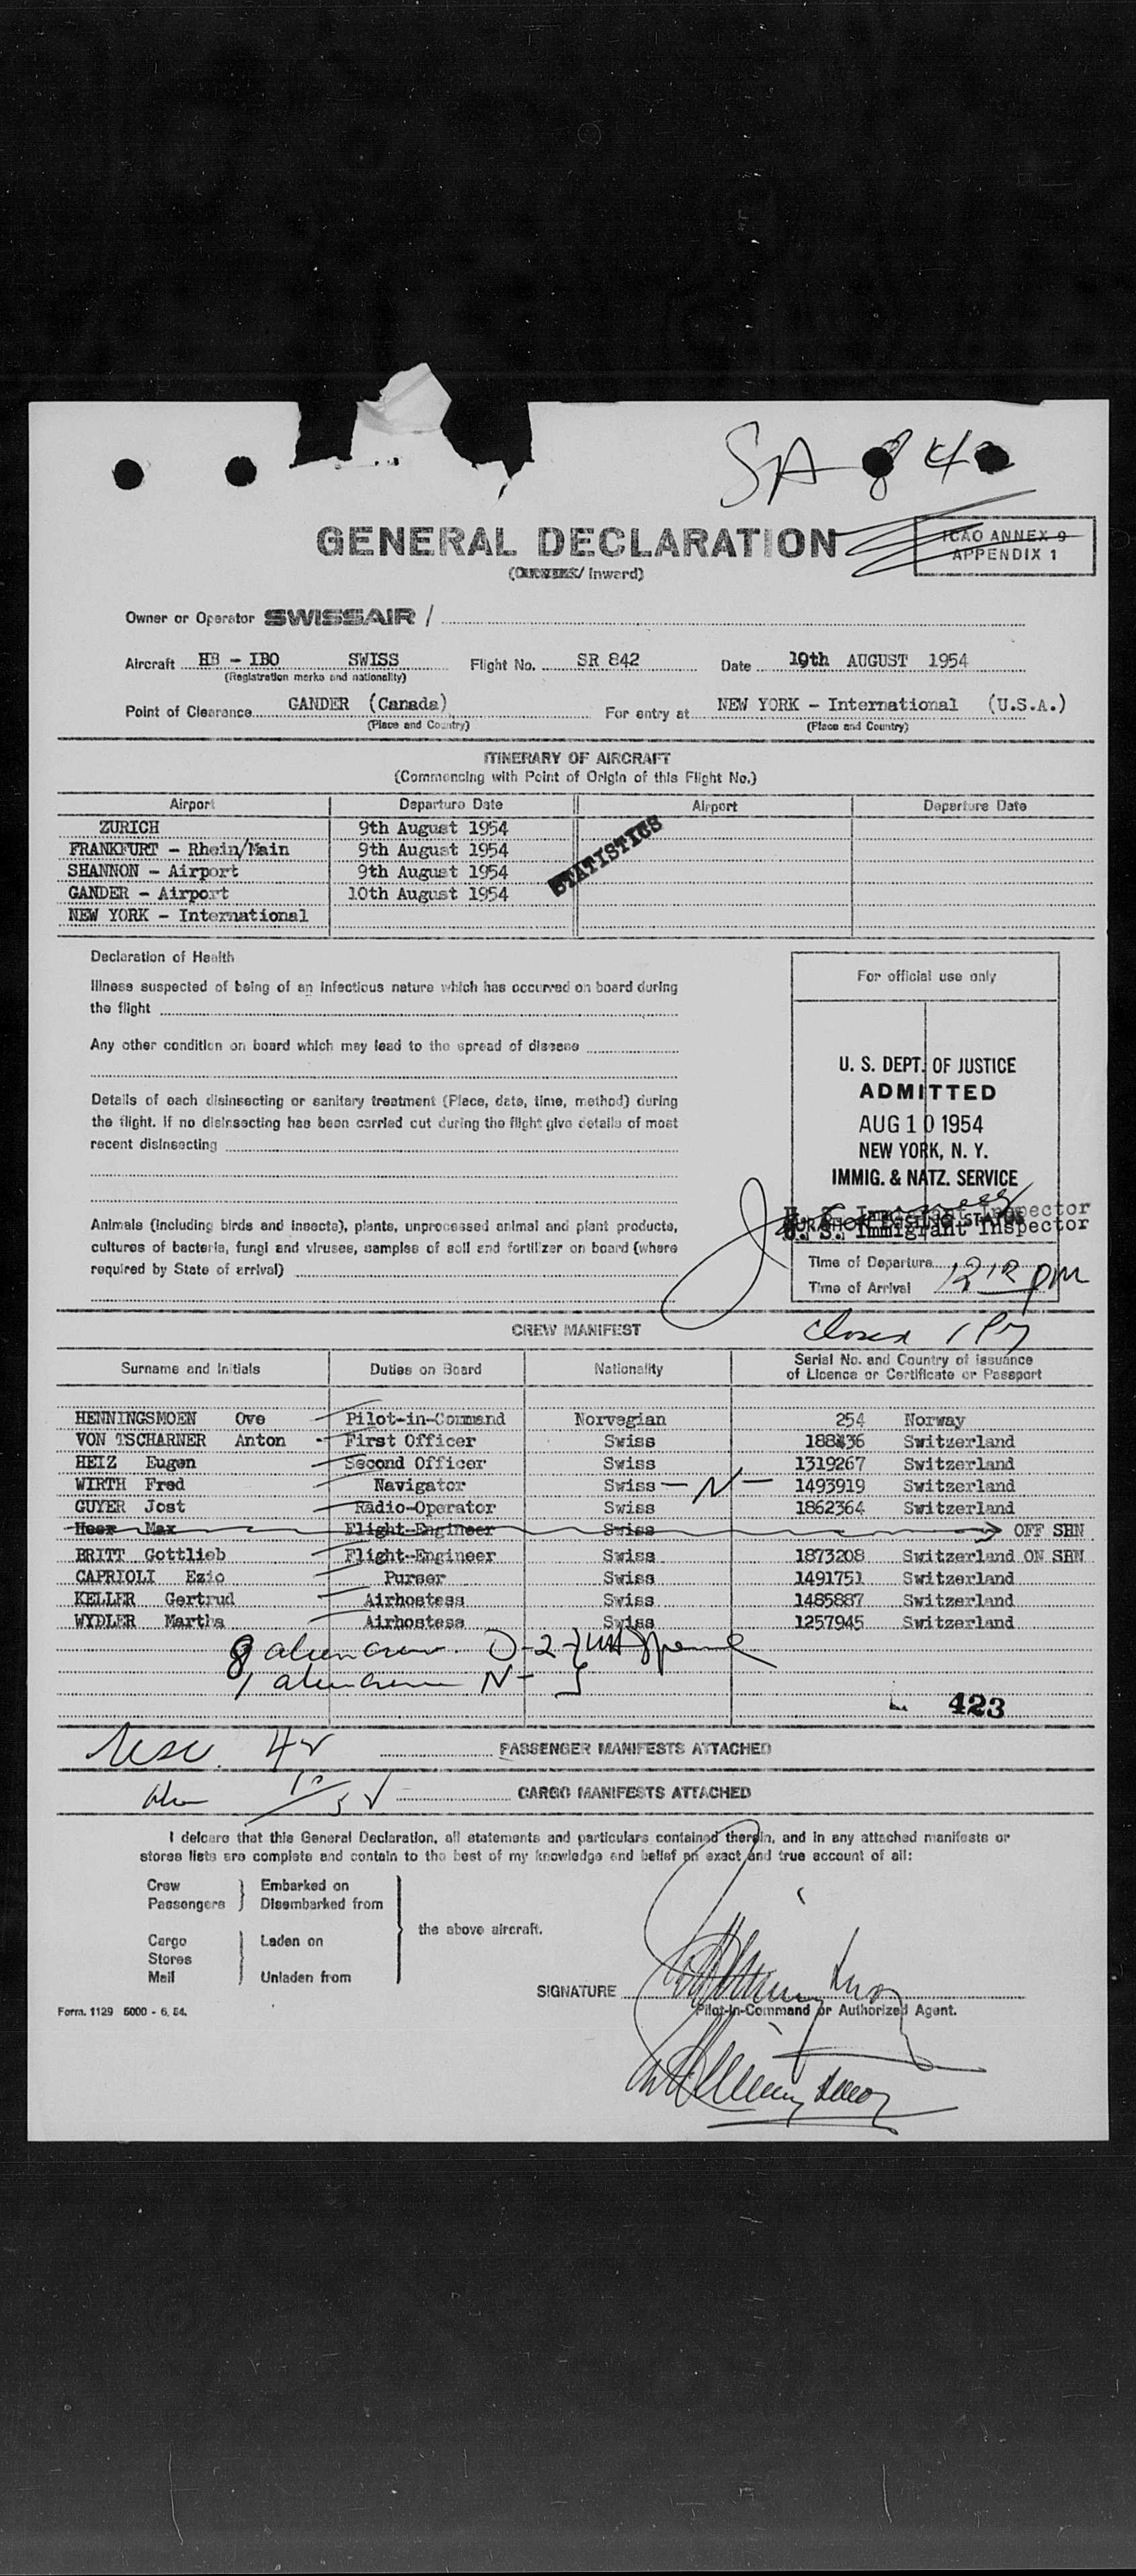 SA 842
GENERAL DECLARATION
ICAO ANNEX 9
APPENDIX 1
(Outward/ Inward)
Owner or Operator SWISSAIR /
Aircraft HB - IBO SWISS Flight No. SR 842 Date 10th AUGUST 1954
(Registration marks and nationality)
Point of Clearance GANDER (Canada) For entry at NEW YORK - International (U.S.A.)
(Place and Country) (Place and Country)
ITINERARY OF AIRCRAFT
(Commencing with Point of Origin of this Flight No.)
Airport Departure Date Airport Departure Date
ZURICH 9th August 1954
FRANKFURT - Rhein/Main 9th August 1954
SHANNON - Airport 9th August 1954
GANDER - Airport 10th August 1954
NEW YORK - International
STATISTICS
Declaration of Health
Illness suspected of being of an infectious nature which has occurred on board during
the flight
Any other condition on board which may lead to the spread of disease
Details of each disinsecting or sanitary treatment (Place, date, time, method) during
the flight. If no disinsecting has been carried out during the flight give details of most
recent disinsecting
Animals (including birds and insects), plants, unprocessed animal and plant products,
cultures of bacteria, fungi and viruses, samples of soil and fertilizer on board (where
required by State of arrival)
For official use only
U. S. DEPT. OF JUSTICE
ADMITTED
AUG 10 1954
NEW YORK, N. Y.
IMMIG. & NATZ. SERVICE
U. S. Immigrant Inspector
U. S. Immigrant Inspector
Time of Departure
Time of Arrival 12 12 pm
Closed 1 PM
CREW MANIFEST
Surname and Initials Duties on Board Nationality Serial No. and Country of issuance
of Licence or Certificate or Passport
HENNINGSMOEN Ove Pilot-in-Command Norwegian 254 Norway
VON TSCHARNER Anton First Officer Swiss 188436 Switzerland
HEIZ Eugen Second Officer Swiss 1319267 Switzerland
WIRTH Fred Navigator Swiss - N - 1493919 Switzerland
GUYER Jost Radio-Operator Swiss 1862364 Switzerland
Heer Max Flight-Engineer Swiss OFF SHN
BRITT Gottlieb Flight-Engineer Swiss 1873208 Switzerland ON SHN
CAPRIOLI Ezio Purser Swiss 1491751 Switzerland
KELLER Gertrud Airhostess Swiss 1485887 Switzerland
WYDLER Martha Airhostess Swiss 1257945 Switzerland
8 alien crew D-2
1 alien crew N-
423
USC 42
PASSENGER MANIFESTS ATTACHED
CARGO MANIFESTS ATTACHED
I delcare that this General Declaration, all statements and particulars contained therein, and in any attached manifests or
stores lists are complete and contain to the best of my knowledge and belief an exact and true account of all:
Crew Embarked on
Passengers Disembarked from
the above aircraft.
Cargo Laden on
Stores
Mail Unladen from
SIGNATURE
Pilot-in-Command or Authorized Agent.
Form. 1129 5000 - 6. 54.